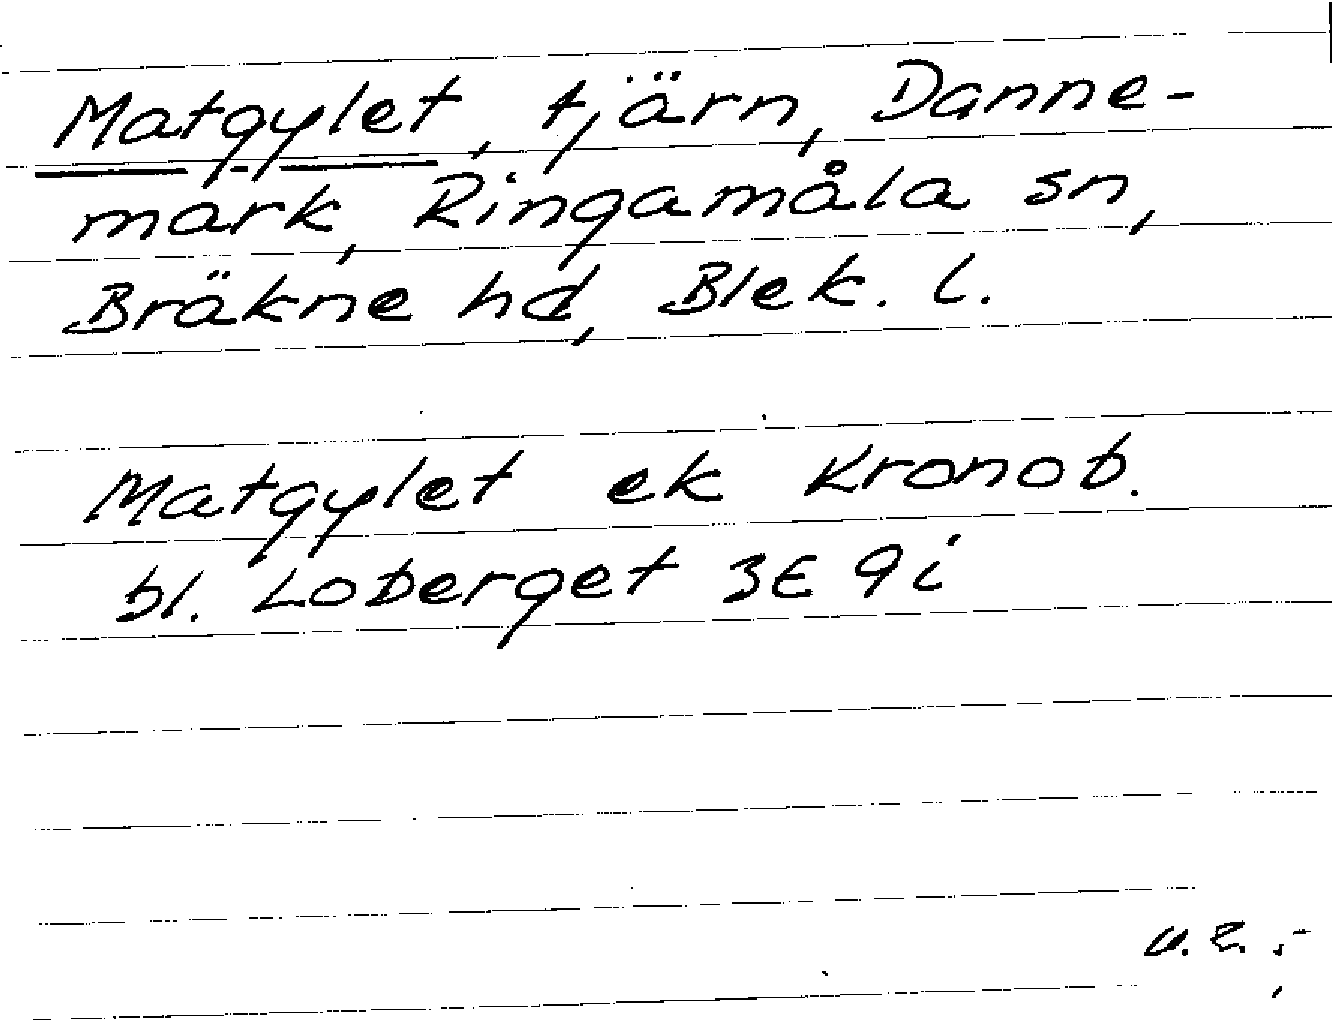 Matgylet, tjärn, Danne-
mark, Ringamåla sn,
Bräkne hd, Blek. l.
Matgylet ek Kronob.
bl. Loberget 3E 9i